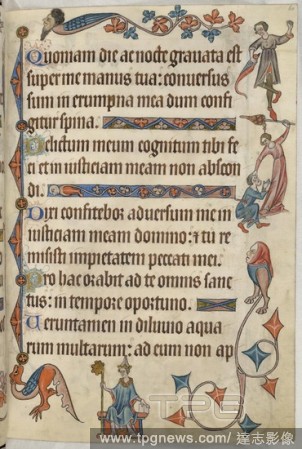 Quoniam die ac nocte gravata est
super me manus tua: conversus
sum in erumpna mea dum confi
gitur spina.
Delictum meum cognitum tibi fe
ci et iniusticiam meam non abscon
di.
Dixi confitebor adversum me in
iusticiam meam domino: ⁊ tu re
misisti impietatem peccati mei.
Pro hac orabit ad te omnis sanc
tus: in tempore oportuno.
Veruntamen in diluvio aqua
rum multarum: ad eum non ap
TPG
www.tpgnews.com/達志影像